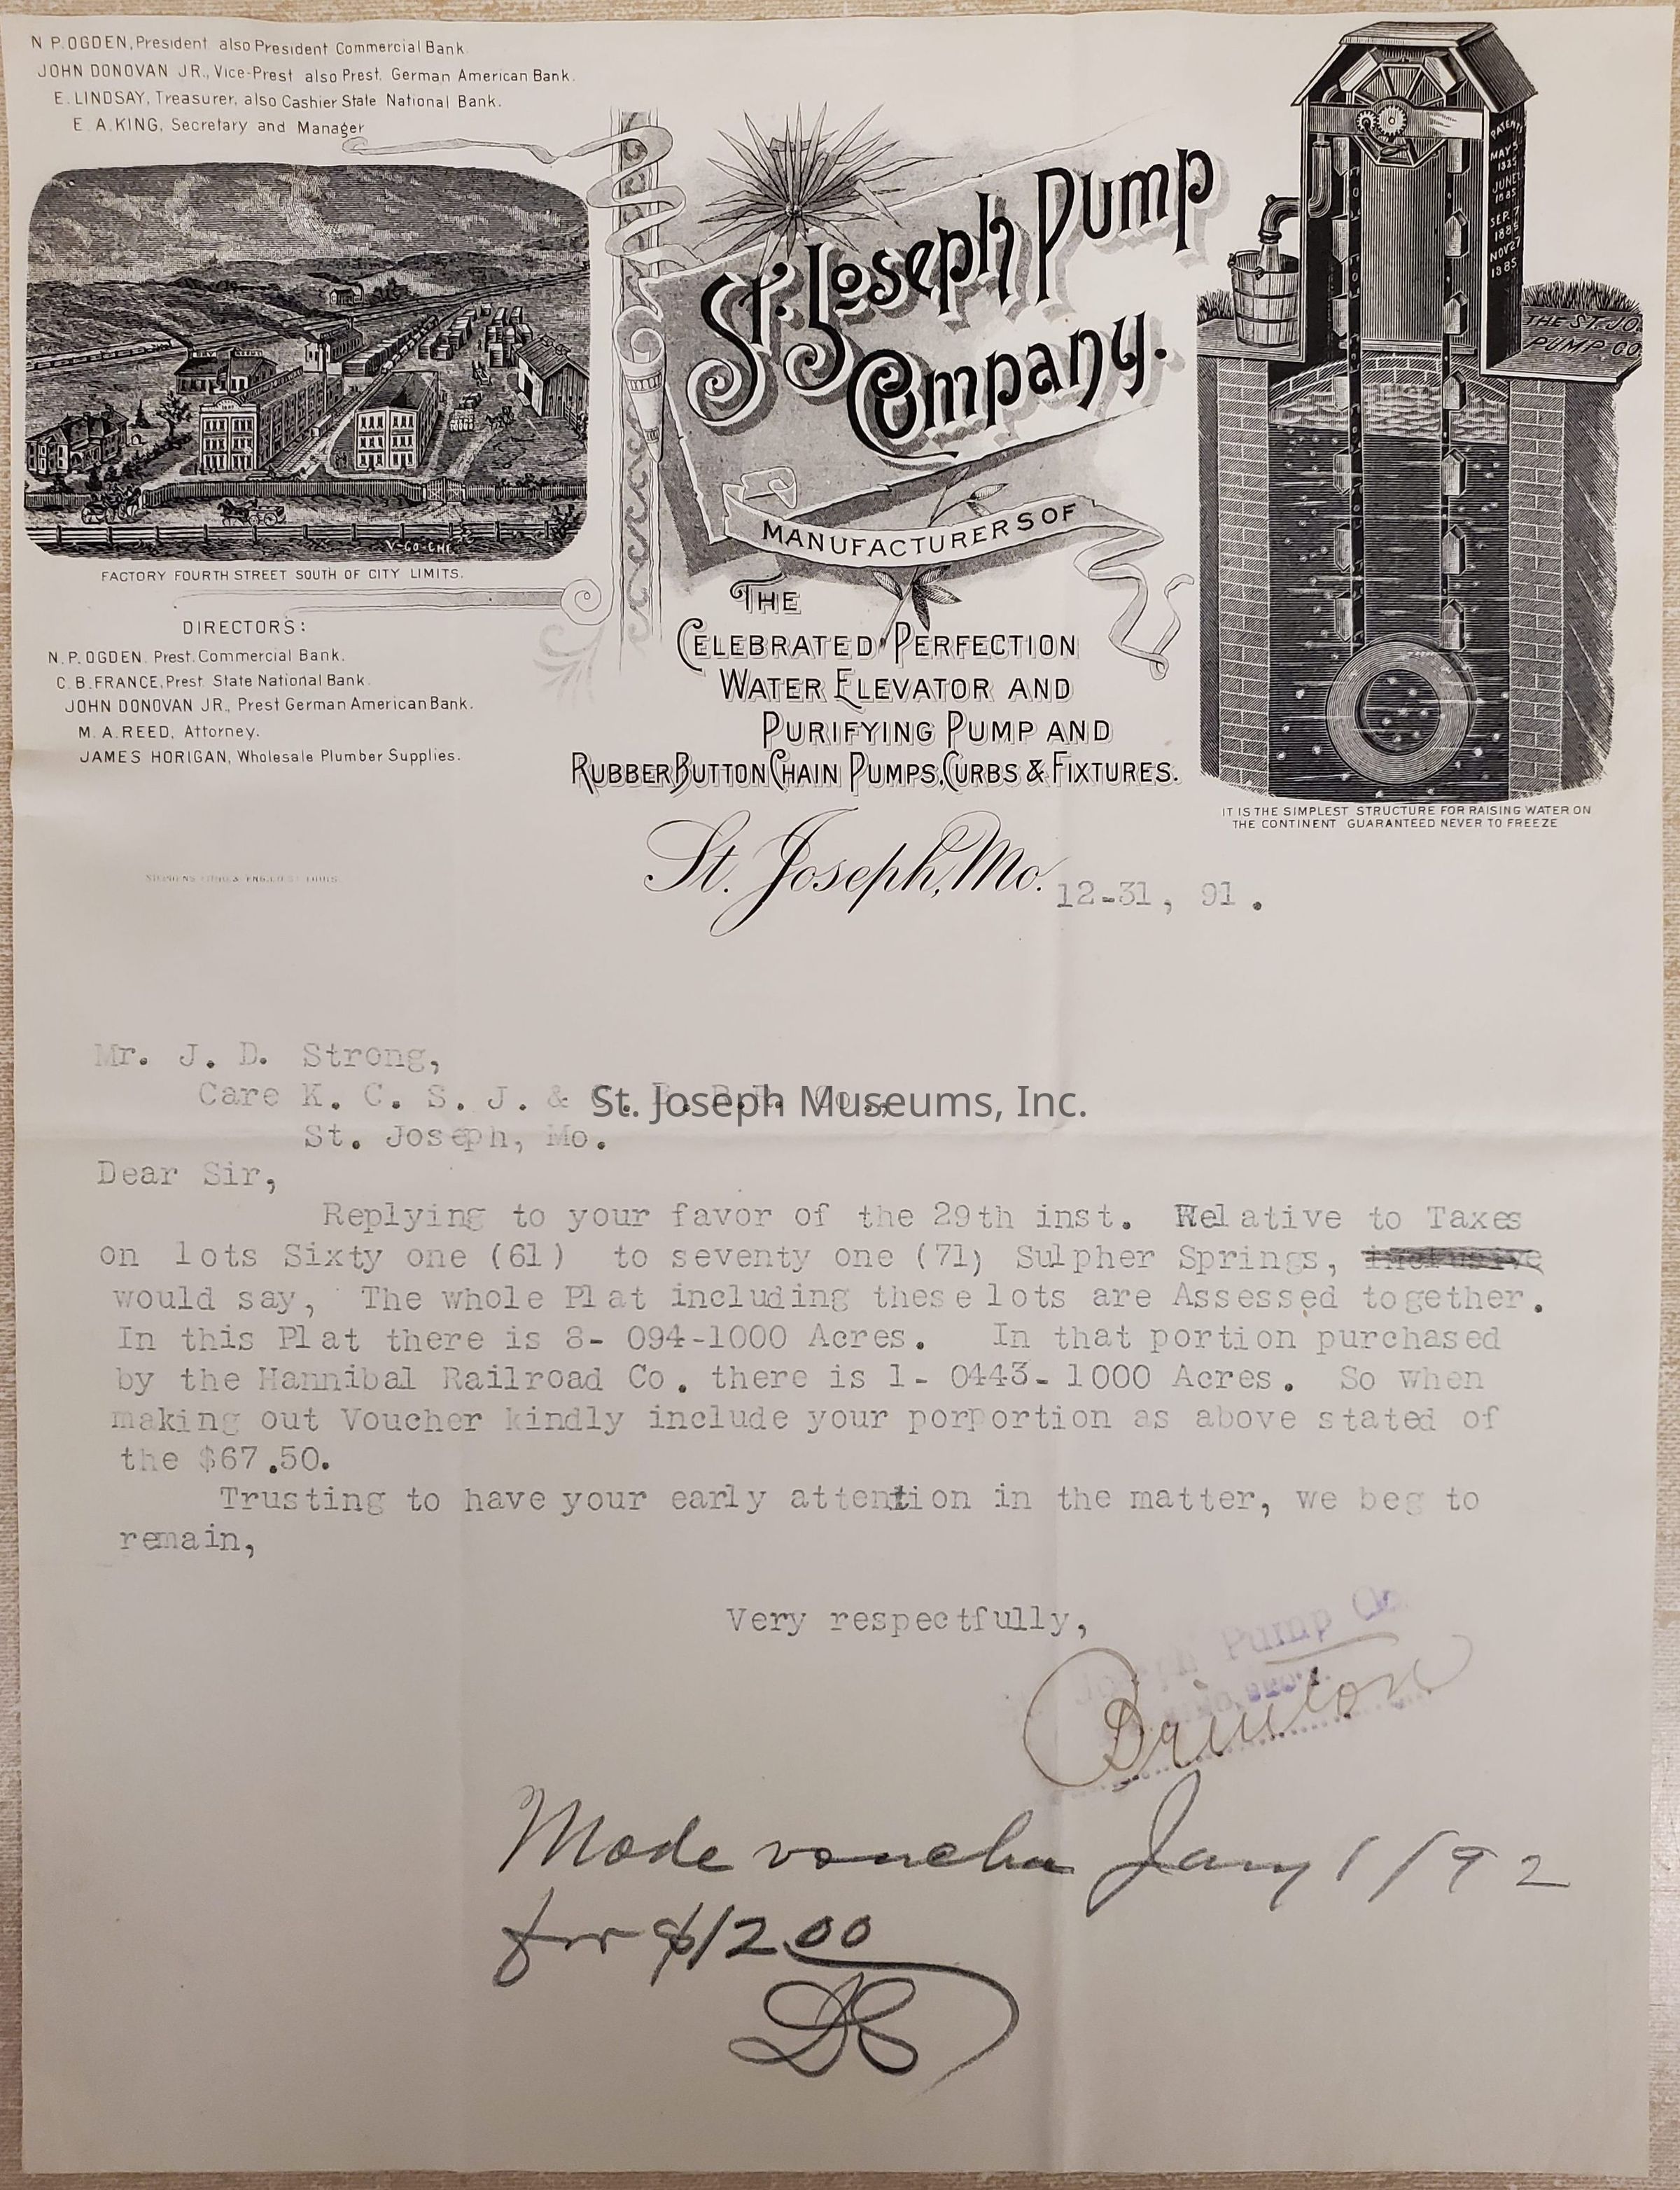 N. P. OGDEN, President also President Commercial Bank.
JOHN DONOVAN JR., Vice-Prest also Prest. German American Bank.
E. LINDSAY, Treasurer, also Cashier State National Bank.
E. A. KING, Secretary and Manager
V-CO-CHI.
FACTORY FOURTH STREET SOUTH OF CITY LIMITS.
DIRECTORS:
N. P. OGDEN. Prest. Commercial Bank.
C. B. FRANCE, Prest. State National Bank.
JOHN DONOVAN JR., Prest German American Bank.
M. A. REED, Attorney.
JAMES HORIGAN, Wholesale Plumber Supplies.
St. Joseph Pump
Company.
MANUFACTURERS OF
THE
CELEBRATED PERFECTION
WATER ELEVATOR AND
PURIFYING PUMP AND
RUBBER BUTTON CHAIN PUMPS, CURBS & FIXTURES.
PATENTS
MAY 5
1885
JUNE 1
1885
SEP. 7
1885
NOV 27
1885
THE ST. JO.
PUMP. CO
IT IS THE SIMPLEST STRUCTURE FOR RAISING WATER ON
THE CONTINENT GUARANTEED NEVER TO FREEZE
St. Joseph, Mo. 12-31, 91.
Mr. J. D. Strong,
Care K. C. S. J. & C. B. R.R. Co.,
St. Joseph Museums, Inc.
St. Joseph, Mo.
Dear Sir,
Replying to your favor of the 29th inst. Relative to Taxes
on lots Sixty one (61) to seventy one (71) Sulpher Springs, inclusive
would say, The whole Plat including these lots are Assessed together.
In this Plat there is 8- 094-1000 Acres. In that portion purchased
by the Hannibal Railroad Co. there is 1- 0443- 1000 Acres. So when
making out Voucher kindly include your porportion as above stated of
the $67.50.
Trusting to have your early attention in the matter, we beg to
remain,
Very respectfully,
Joseph Pump Co.
Made voucher Jany 1/92
for $12.00